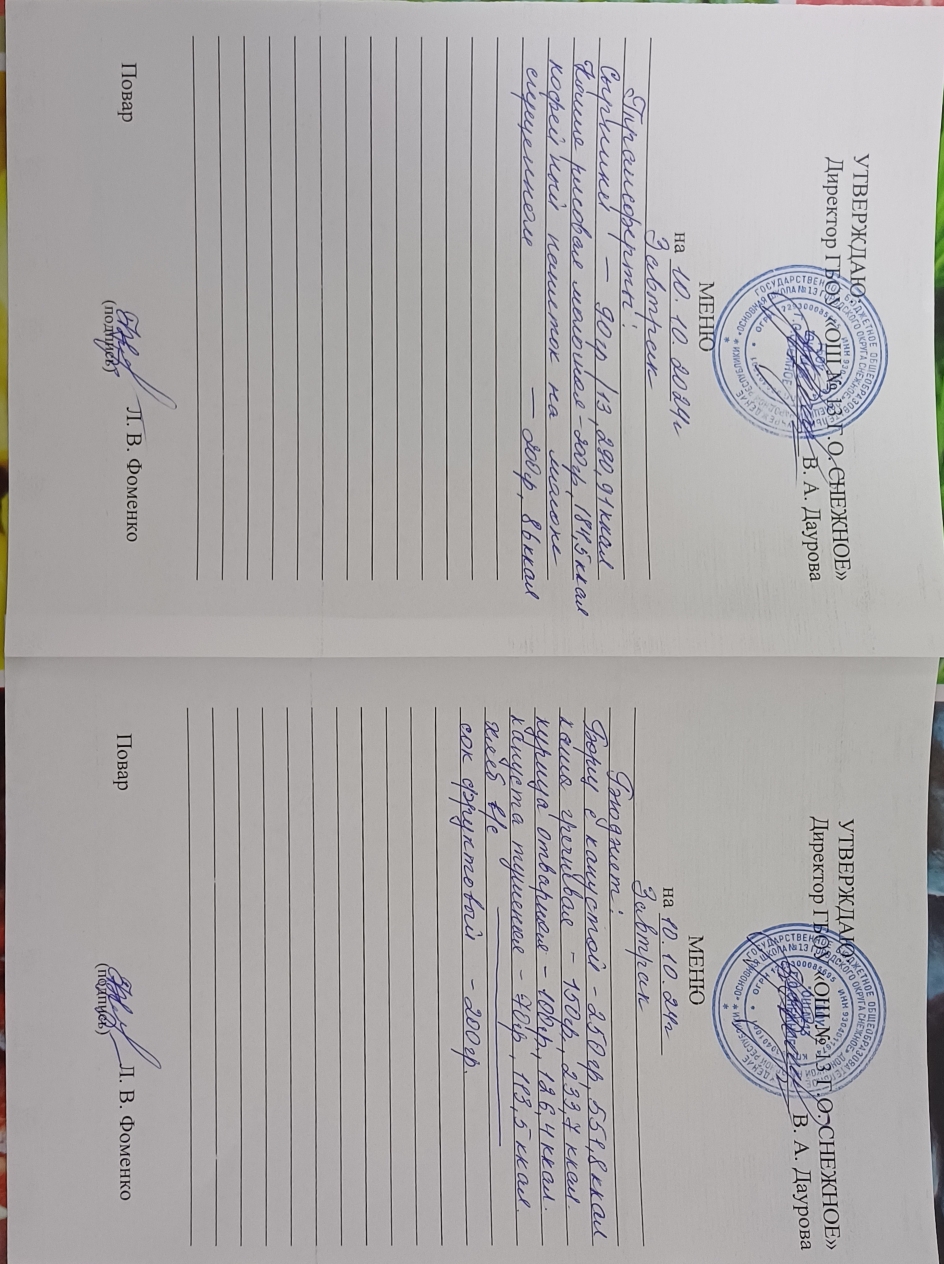 УТВЕРЖДАЮ:
Директор ГБОУ «ОШ № 13 Г.О. СНЕЖНОЕ»
В. А. Даурова
МЕНЮ
на 10.10.2024г
Завтрак
Трансферты:
Сырники — 90гр/13, 290,91ккал
Каша рисовая молочная - 200гр, 184,5ккал
кофейный напиток на молоке
сгущенном — 200гр, 86ккал
Повар
Л. В. Фоменко
(подпись)
УТВЕРЖДАЮ:
Директор ГБОУ «ОШ № 13 Г.О. СНЕЖНОЕ»
В. А. Даурова
МЕНЮ
на 10.10.24г
Завтрак
Бюджет:
Борщ с капустой - 250гр, 551,8ккал
каша гречневая - 150гр, 233,7ккал.
курица отварная - 100гр, 126,4ккал.
капуста тушеная - 70гр, 183,5ккал.
хлеб в/с
сок фруктовый - 200гр.
Повар
Л. В. Фоменко
(подпись)